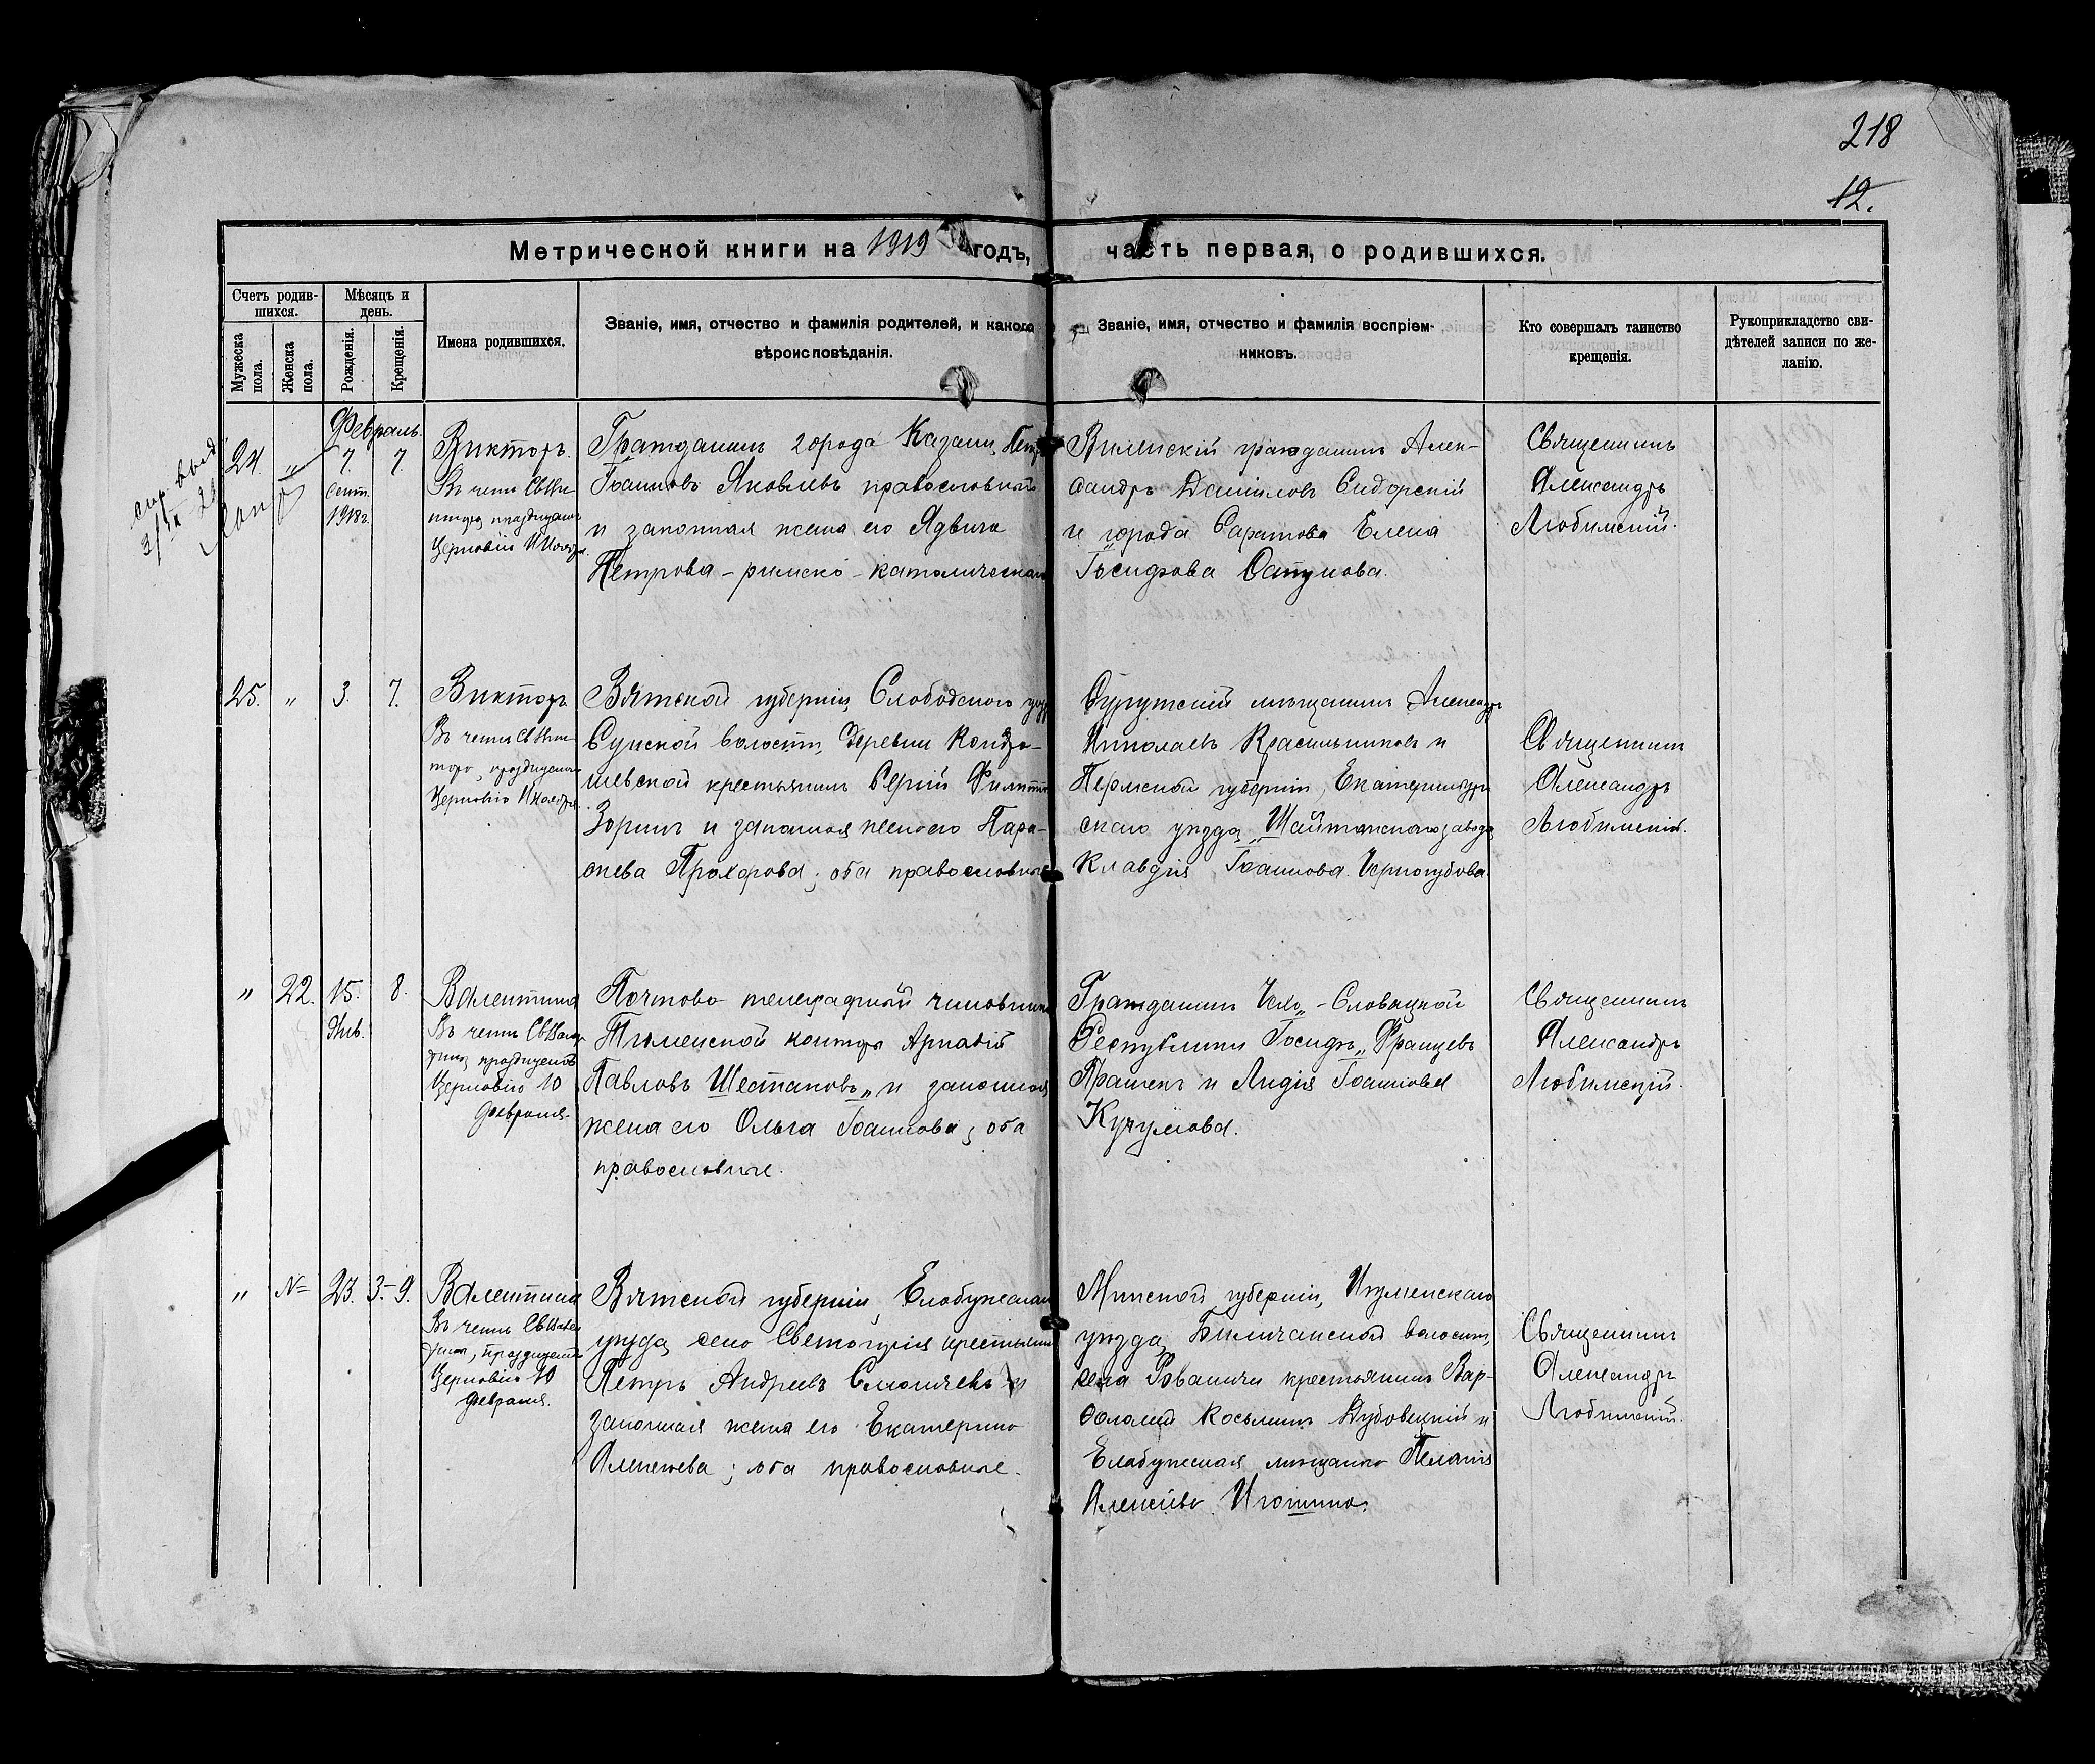 218
12.
Метрической книги на 1919 годъ, часть первая, о родившихся.
Счетъ родив-
шихся.
Мѣсяцъ и
день.
Мужеска
пола.
Женска
пола.
Рожденія.
Крещенія.
Имена родившихся.
Званіе, имя, отчество и фамилія родителей, и какого
вѣроисповѣданія.
Званіе, имя, отчество и фамилія воспріем-
никовъ.
Кто совершалъ таинство
крещенія.
Рукоприкладство сви-
дѣтелей записи по же-
ланію.
Февраль.
24. " 7. 7
сент.
1918 г.
Викторъ.
Въ честь Св Ни-
Церковію
Гражданинъ города Казани Петръ
Іоанновъ Яковлевъ православный
и законная жена его Ядвига
Петрова - римско - католическая
Виленскій гражданинъ Алек-
сандръ Даниловъ Сидорскій
и города Саратова Елена
Іосифова
Священникъ
Александръ
Любимскій.
25. " 3. 7.
Викторъ
Въ честь Св
Церковію
Вятской губерніи, Слободского
Сунской волости, деревни Кондра-
шевской крестьянинъ Сергій
Зоринъ и законная жена его Пара-
скева Прохорова; оба православные
Сургутскій мѣщанинъ Александръ
Николаевъ Красильниковъ и
Пермской губерніи, Екатеринбург
скаго уѣзда, Шайтанскаго завода
Клавдія Іоаннова Черногубова
Священникъ
Александръ
Любимскій.
" 22. 15. 8.
Янв.
Валентина
Въ честь Св Вален
тины празднуемой
Церковію 10
февраля.
Почтово телеграфный чиновникъ
Тюменской конторы Аркадій
Павловъ Шестаковъ и законная
жена его Ольга Іоаннова; оба
православные.
Гражданинъ Чехо-Словацкой
Республики Іосифъ Францевъ
Прашекъ и Лидія Іоаннова
Кучумова.
Священникъ
Александръ
Любимскій.
" № 23. 3. - 9.
Валентина
Въ честь Св Вален
тины, празднуемой
Церковію 10
февраля.
Вятской губерніи, Елабужскаго
уѣзда, село крестьянинъ
Петръ Андреевъ и
законная жена его Екатерина
Алексѣева; оба православные.
Минской губерніи, Игуменскаго
уѣзда, волости,
села крестьянинъ Вар-
ѳоломей Косьминъ Дубовецкій и
Елабужская мѣщанка Пелагія
Алексѣева Игошина.
Священникъ
Александръ
Любимскій.